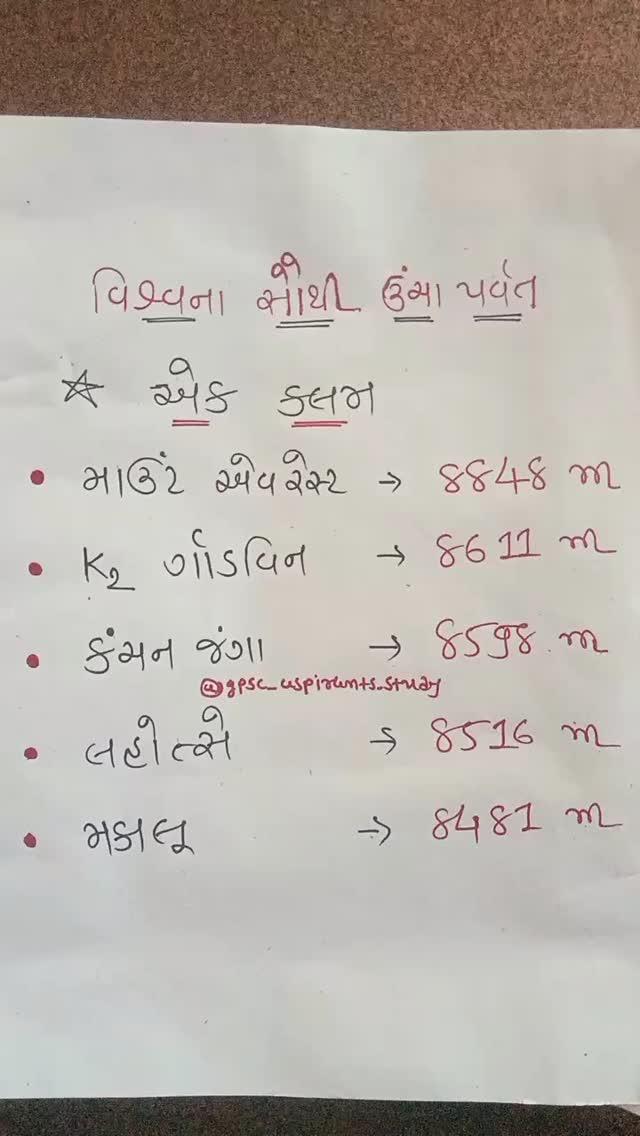 વિશ્વના સૌથી ઉંચા પર્વત
☆ એક કલમ
• માઉંટ એવરેસ્ટ → 8848 m
• K2 ગોડવિન → 8611 m
• કંચન જંગા → 8598 m
@gpsc_aspirants_study
• લહોત્સે → 8516 m
• મકાલૂ → 8481 m